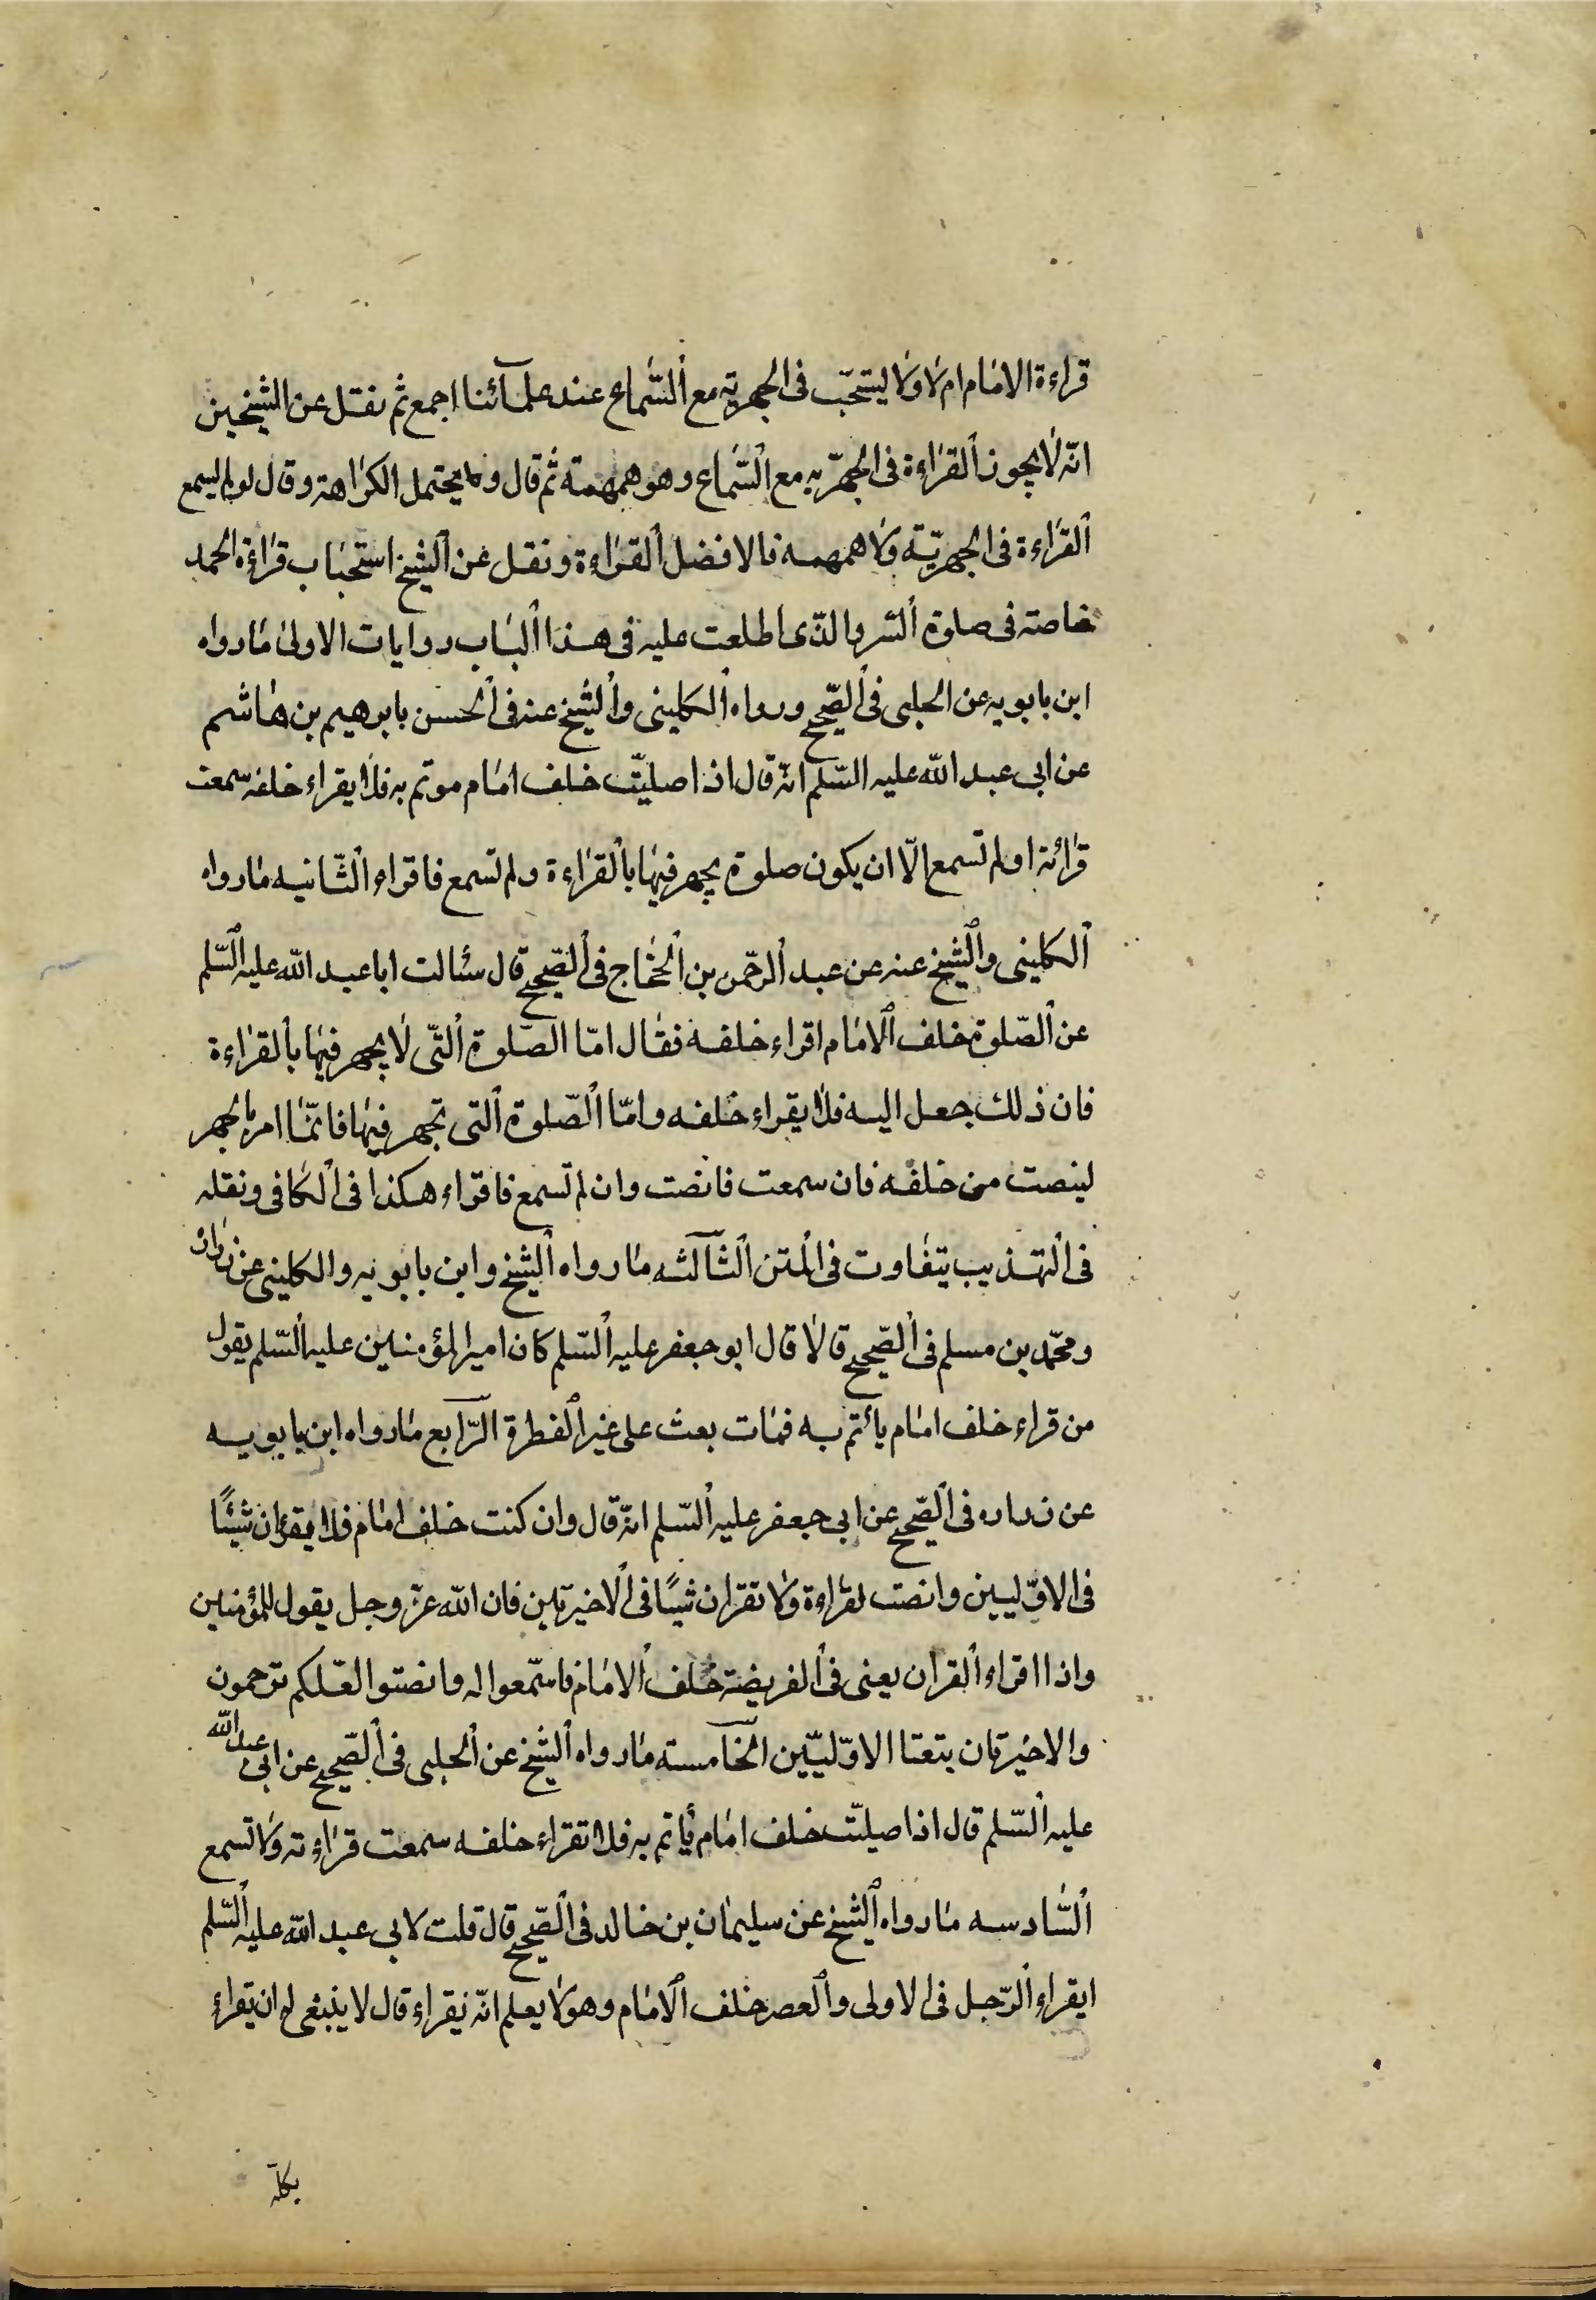 قراءة الامام ام لا ولا يستحبّ فى الجهريّه مع السّماع عند علمآئنا اجمع ثم نقل عن الشيخين
انّه لا يجوز القراءة فى الجهرّيه مع السّماع وهو همهمة ثم قال و يحتمل الكراهة وقال لو لم يسمع
القراءة فى الجهريّة ولا همهمه فالافضل القراءة ونقل عن الشيخ استحباب قراءة الحمد
خاصته فى صلوة السّر والذّى اطلعت عليه فى هذا الباب روايات الاولى ما رواه
ابن بابويه عن الحلبى فى الصّحيح ورواه الكلينى والشيخ عنه فى الحسن بابرهيم بن هاشم
عن ابى عبد الله عليه السّلم انّه قال اذا صليّت خلف امام موتم به فلا يقراء خلفه سمعت
قرائة او لم تسمع الّا ان يكون صلوة يجهر فيها بالقراءة ولم تسمع فاقراء الثّانيه ما رواه
الكلينى والشيخ عنه عن عبد الرحّمن بن الحجّاج فى الصّحيح قال سئالت ابا عبد الله عليه السّلم
عن الصّلوة خلف الامام اقراء خلفه فقال امّا الصّلوة التّى لا يجهر فيها بالقراءة
فان ذلك جعل اليه فلا يقراء خلفه وامّا الصّلوة التى تجهر فيها فانّما امر بالجهر
لينصت من خلفه فان سمعت فانصت وان لم تسمع فاقراء هكذا فى الكافى ونقله
فى التهذيب يتفاوت فى المتن الثآلثه ما رواه الشيخ وابن بابويه والكلينى عن زراره
ومحّمد بن مسلم فى الصّحيح قالا قال ابو جعفر عليه السّلم كان امير المؤمنين عليه السّلم يقول
من قراء خلف امام يأتم به فمات بعث على غير الفطرة الرّابع ما رواه ابن بابويه
عن زراره فى الصّحيح عن ابى جعفر عليه السّلم انّه قال وان كنت خلف امام فلا يقرؤان شيئًا
فى الاوّليين وانصت لقراءة ولا تقران شيئًا فى الاخيرتين فان الله عزّ وجل يقول للمؤمنين
واذا اقراء القران يعنى فى الفريضة خلف الامام فاستّمعوا له وانصتوا لعّلكم ترحمون
والاخيرتان يتعتا الاوّليّين الخآمسته ما رواه الشيخ عن الحلبى فى الصّحيح عن ابى عبد الله
عليه السّلم قال اذا صليّت خلف امام يأتم به فلا تقراء خلفه سمعت قراءته ولا تسمع
السّادسه ما رواه الشيخ عن سليمان بن خالد فى الصّحيح قال قلت لابى عبد الله عليه السّلم
ايقراء الرّجل فى الاولى والعصر خلف الامام وهو لا يعلم انّه نيقراء قال لا ينبغى له ان يقراء
بكلّه